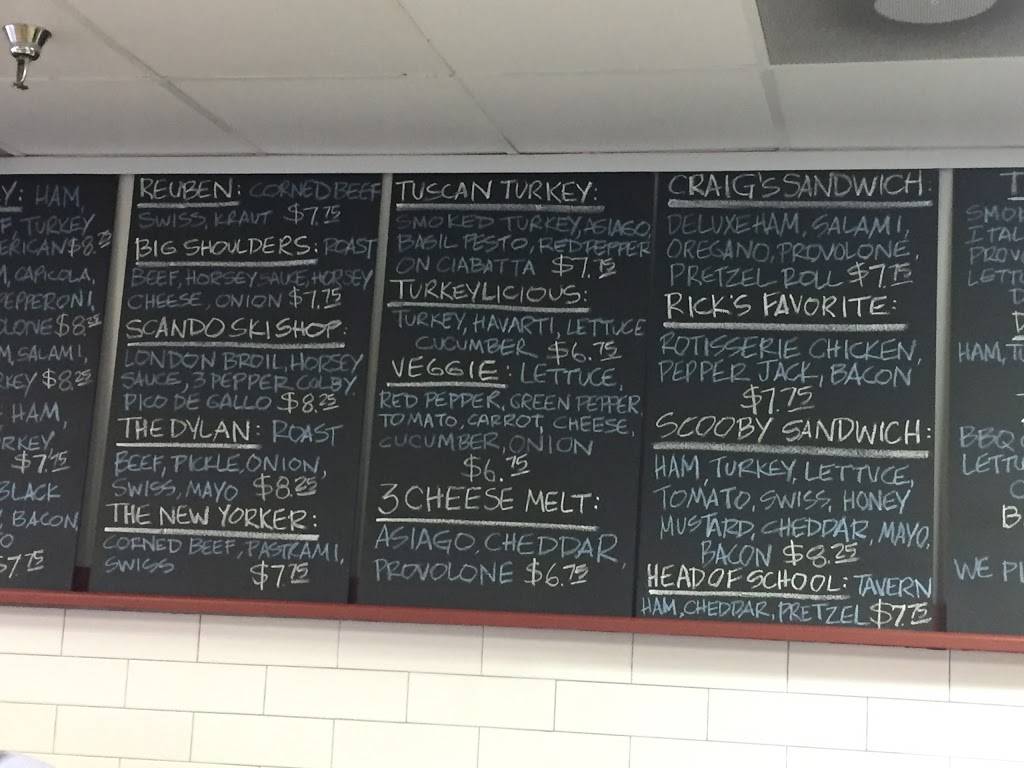 Y: HAM,
F, TURKEY
ERICAN $8.25
M, CAPICOLA,
PEPPERONI,
LONE $8.25
M, SALAMI,
RKEY $8.25
HAM,
RKEY,
$7.75
BLACK
, BACON
O
$7.75
REUBEN: CORNED BEEF
SWISS, KRAUT $7.75
BIG SHOULDERS: ROAST
BEEF, HORSEY SAUCE, HORSEY
CHEESE, ONION $7.75
SCANDO SKI SHOP:
LONDON BROIL, HORSEY
SAUCE, 3 PEPPER COLBY
PICO DE GALLO $8.25
THE DYLAN: ROAST
BEEF, PICKLE, ONION,
SWISS, MAYO $8.25
THE NEW YORKER:
CORNED BEEF, PASTRAMI,
SWISS $7.75
TUSCAN TURKEY:
SMOKED TURKEY, ASIAGO,
BASIL PESTO, RED PEPPER
ON CIABATTA $7.75
TURKEYLICIOUS:
TURKEY, HAVARTI, LETTUCE
CUCUMBER $6.75
VEGGIE: LETTUCE,
RED PEPPER, GREEN PEPPER,
TOMATO, CARROT, CHEESE,
CUCUMBER, ONION
$6.75
3 CHEESE MELT:
ASIAGO, CHEDDAR,
PROVOLONE $6.75
CRAIG'S SANDWICH:
DELUXE HAM, SALAMI,
OREGANO, PROVOLONE,
PRETZEL ROLL $7.75
RICK'S FAVORITE:
ROTISSERIE CHICKEN,
PEPPER JACK, BACON
$7.75
SCOOBY SANDWICH:
HAM, TURKEY, LETTUCE,
TOMATO, SWISS, HONEY
MUSTARD, CHEDDAR, MAYO,
BACON $8.25
HEAD OF SCHOOL: TAVERN
HAM, CHEDDAR, PRETZEL $7.75
SMOK
ITAL
PROV
LETTU
D
HAM, TU
BBQ
LETTU
B
WE PI